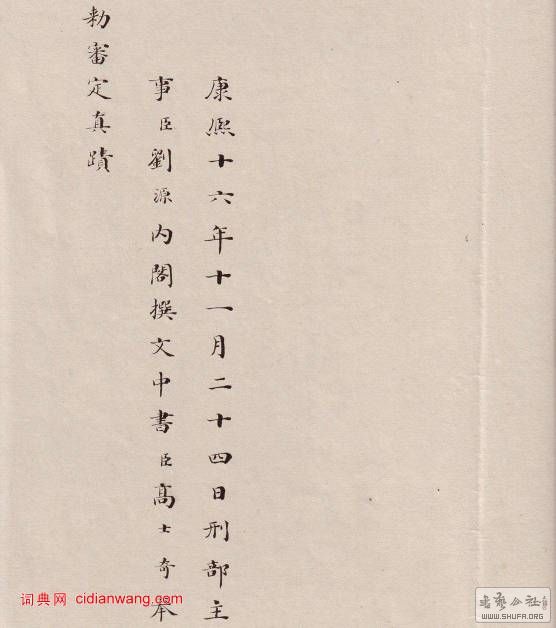 康熙十六年十一月二十四日刑部主
事臣劉源内閣撰文中書臣高士奇奉
勑審定真蹟
词典网 cidianwang.com
WWW.SHUFA.ORG